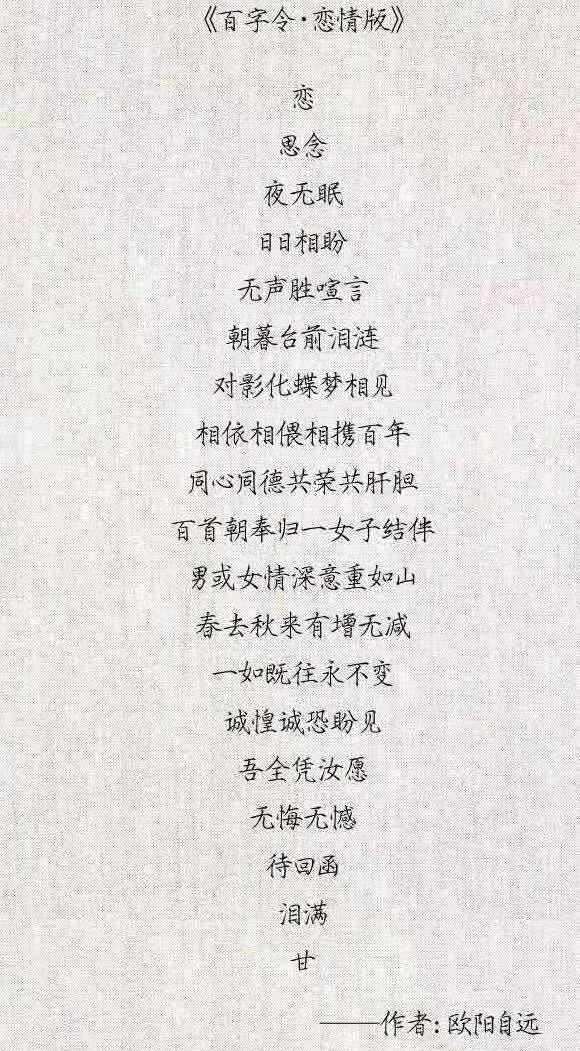 《百字令·恋情版》
恋
思念
夜无眠
日日相盼
无声胜喧言
朝暮台前泪涟
对影化蝶梦相见
相依相偎相携百年
同心同德共荣共肝胆
百首朝奉归一女子结伴
男或女情深意重如山
春去秋来有增无减
一如既往永不变
诚惶诚恐盼见
吾全凭汝愿
无悔无憾
待回函
泪满
甘
——作者:欧阳自远